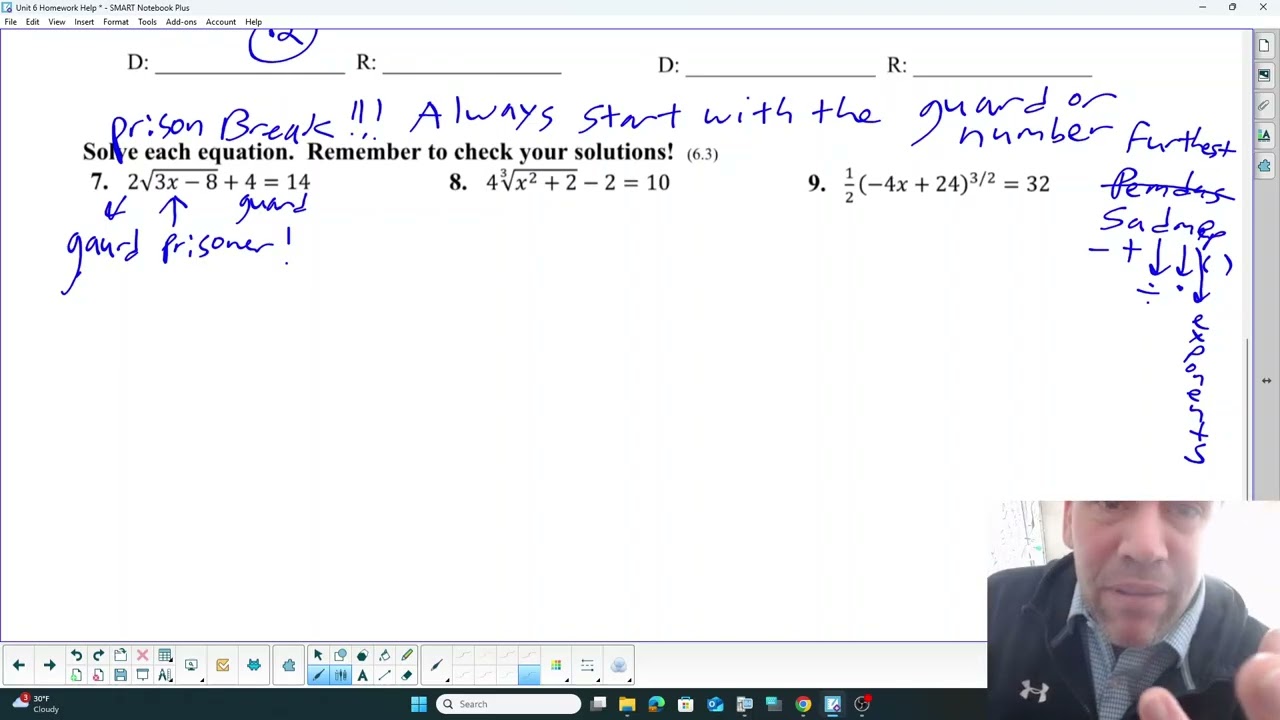 Unit 6 Homework Help * - SMART Notebook Plus
File Edit View Insert Format Tools Add-ons Account Help
12
D: ____________ R: ____________ D: ____________ R: ____________
prison Break!!! Always start with the guard or number furthest
Solve each equation. Remember to check your solutions! (6.3)
7. 2√(3x − 8) + 4 = 14
8. 4∛(x² + 2) − 2 = 10
9. 1/2(−4x + 24)^(3/2) = 32
guard
gaurd prisoner!
Pemdas
Sadmep
− + ( )
÷ ·
exponents
A
3
30°F
Cloudy
Search